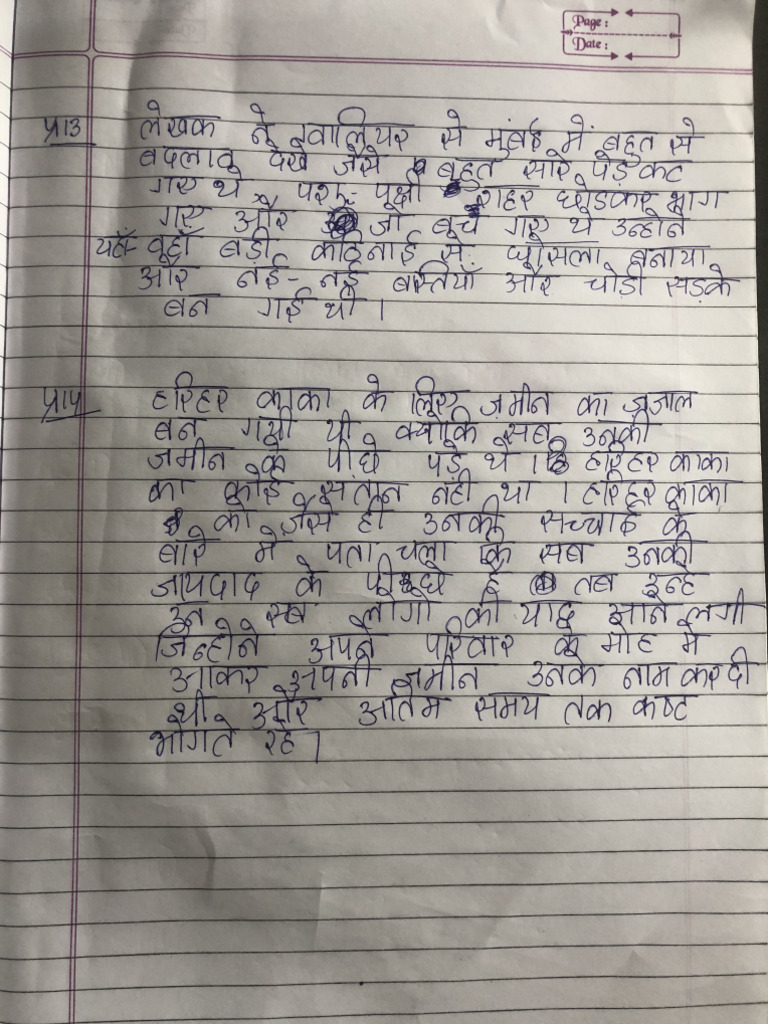 Page :
Date :
प्र13 लेखक ने ग्वालियर से मुंबई में बहुत से
बदलाव देखे जैसे बहुत सारे पेड़ कट
गए थे पशु-पक्षी शहर छोडकर भाग
गए और जो बच गए थे उन्होने
यहाँ-वहाँ बड़ी कठिनाई से घोसला बनाया
और नई-नई बस्तियाँ और चोडी सड़के
बन गई थी ।
प्र14 हरिहर काका के लिए ज़मीन का जंजाल
बन गयी थी क्योंकि सब उनकी
जमीन के पीछे पड़े थे । हरिहर काका
का कोई संतान नही था । हरिहर काका
को जैसे ही उनकी सच्चाई के
बारे में पता चला कि सब उनकी
जायदाद के पीछे है तब उन्हे
उन सब लोगो की याद आने लगी
जिन्होने अपने परिवार के मोह में
आकर अपनी ज़मीन उनके नाम कर दी
थी और अंतिम समय तक कष्ट
भोगते रहे ।